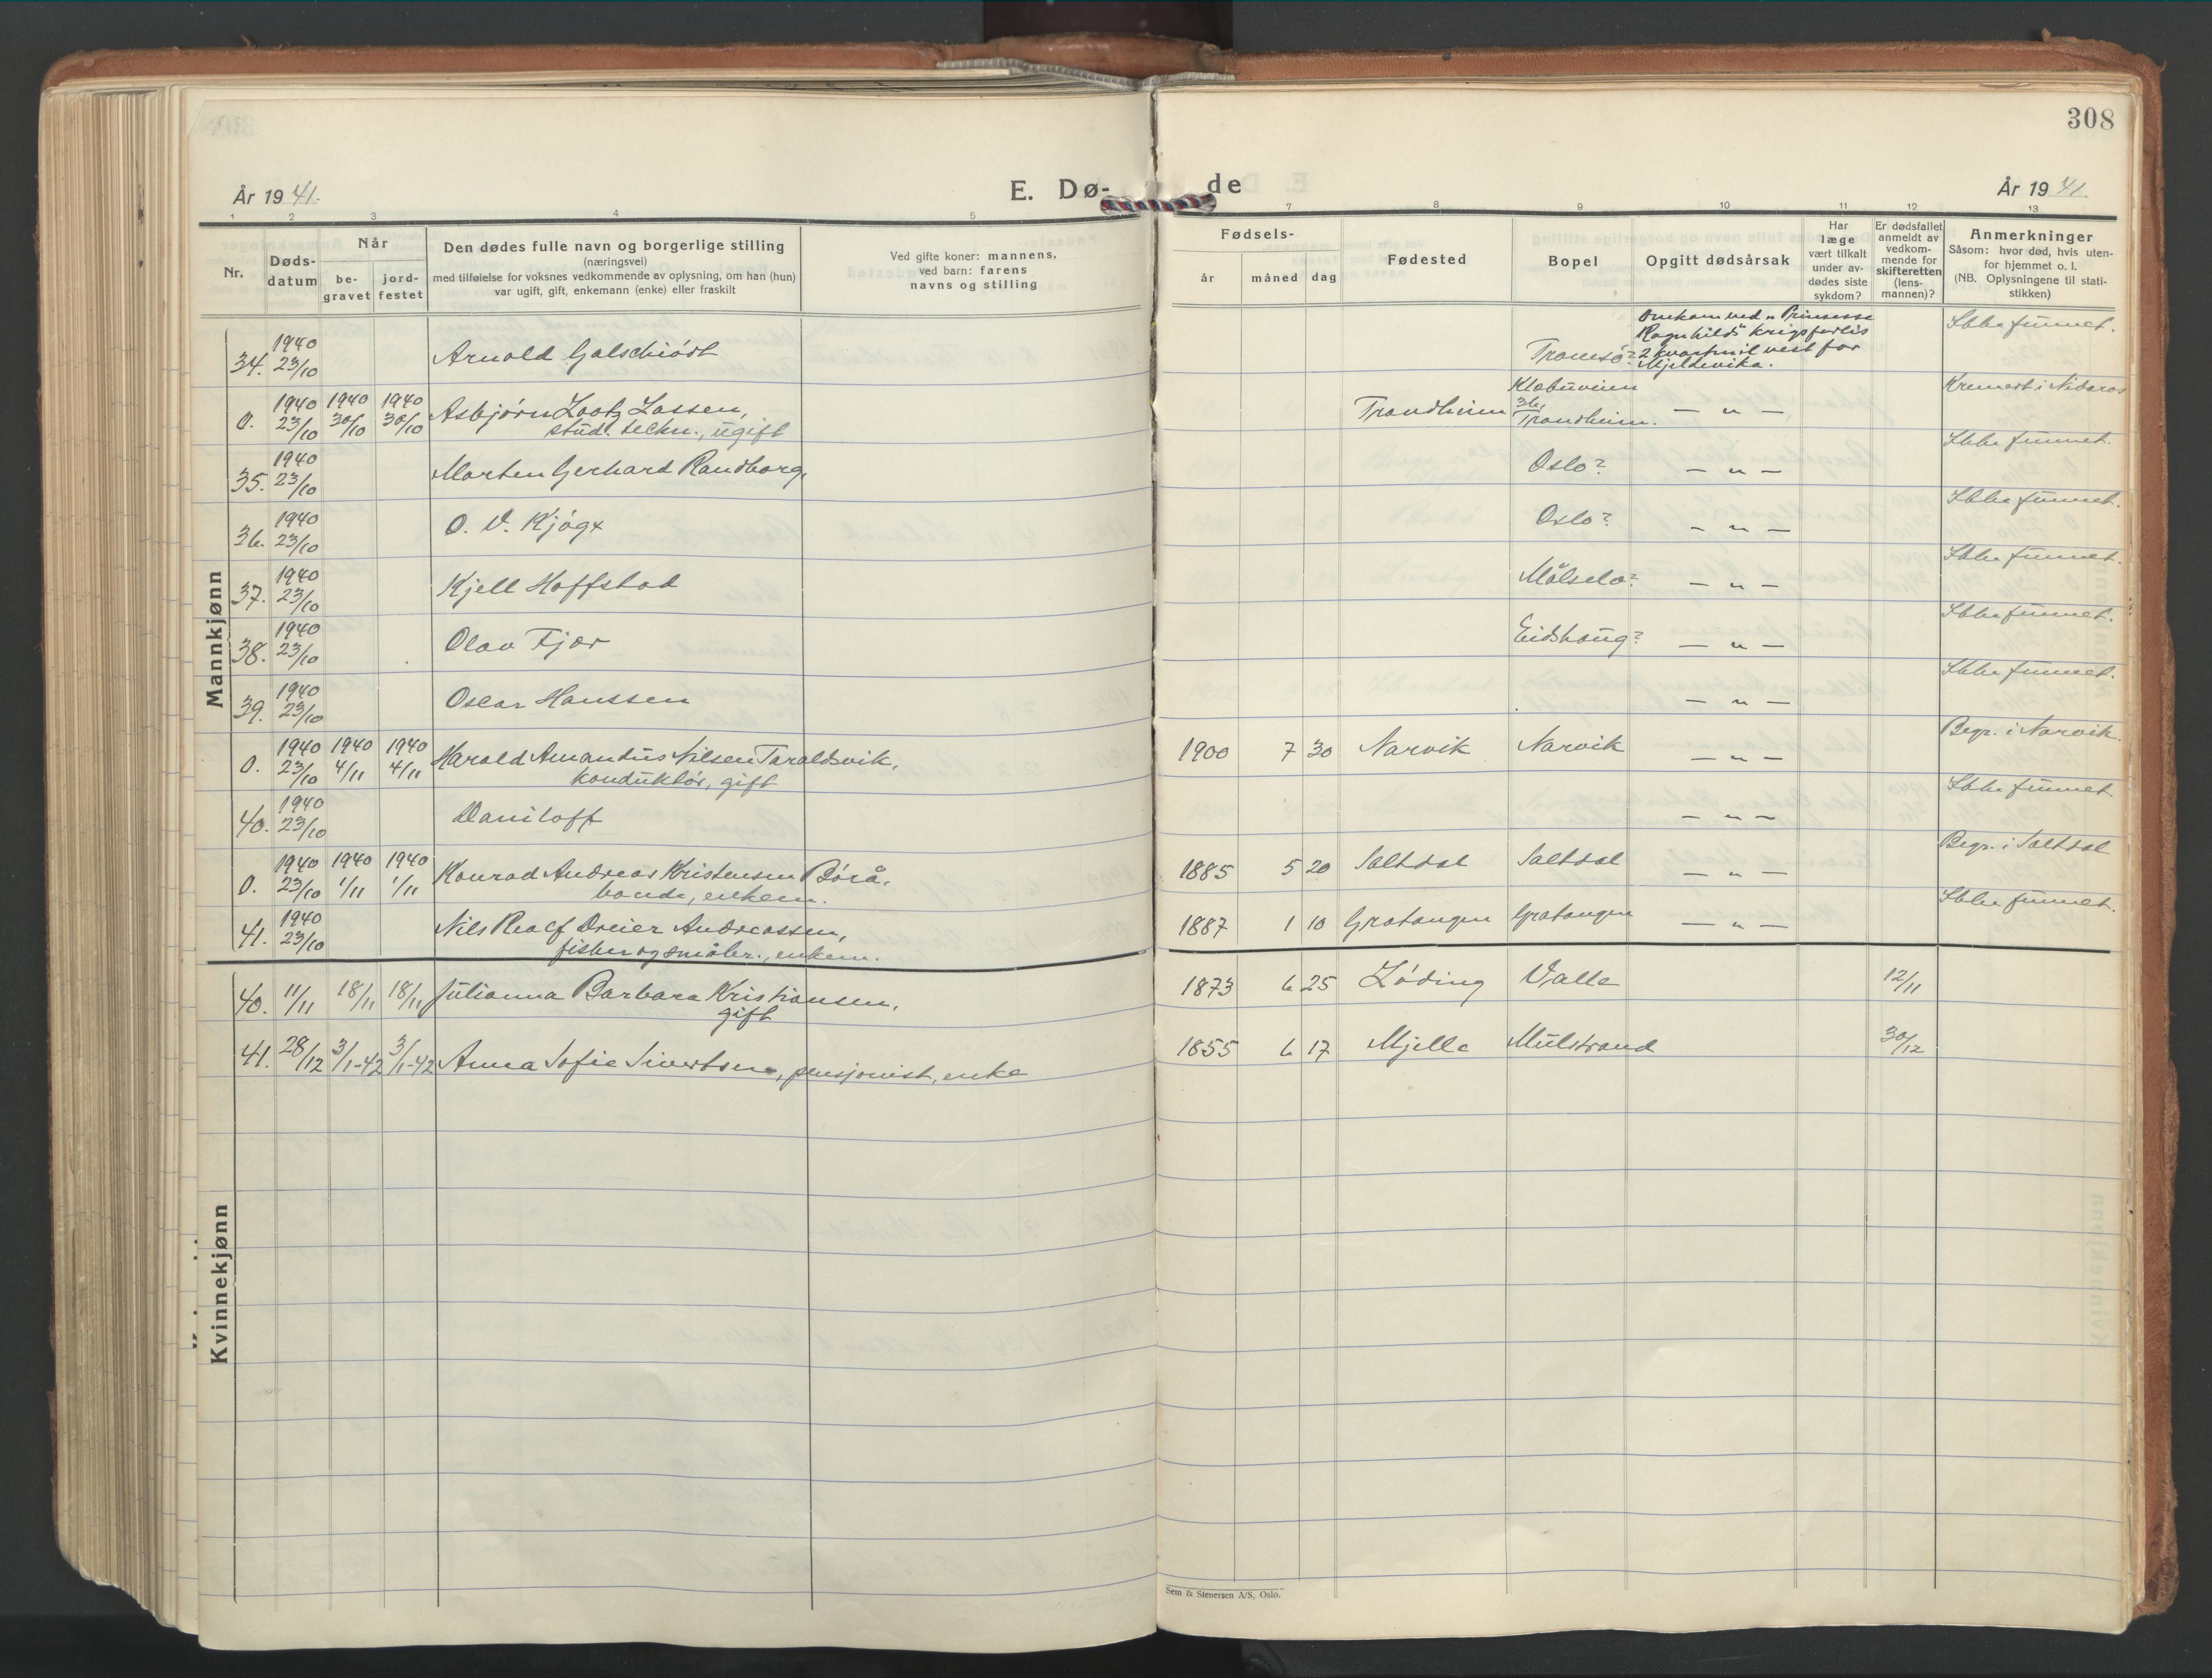 308
År 1941. E. Dø- de År 1941.
1 2 3 4 5 7 8 9 10 11 12 13
Nr.
Døds-
datum
Når
be-
gravet
jord-
festet
Den dødes fulle navn og borgerlige stilling
(næringsvei)
med tilføielse for voksnes vedkommende av oplysning, om han (hun)
var ugift, gift, enkemann (enke) eller fraskilt
Ved gifte koner: mannens,
ved barn: farens
navns og stilling
Fødsels-
år måned dag
Fødested
Bopel
Opgitt dødsårsak
Har
læge
vært tilkalt
under av-
dødes siste
sykdom?
Er dødsfallet
anmeldt av
vedkom-
mende for
skifteretten
(lens-
mannen)?
Anmerkninger
Såsom: hvor død, hvis uten-
for hjemmet o. l.
(NB. Oplysningene til stati-
stikken)
Mannkjønn
34. 1940 23/10 Arnold Galschiödt Tromsö? Omkom ved "Prinsesse
Ragnhilds" krigsforlis
2 kvartmil vest for
Mjeldevika. Ikke funnet.
0. 1940 23/10 1940 30/10 1940 30/10 Asbjörn Lootz Lassen,
stud. techn., ugift Trondheim Klæbuveien
36,
Trondheim. — " — Kremert i Nidaros
35. 1940 23/10 Morten Gerhard Randborg, Oslo? — " — Ikke funnet.
36. 1940 23/10 O. V. Kjögx Oslo? — " — Ikke funnet.
37. 1940 23/10 Kjell Hoffstad Målselv? — " — Ikke funnet.
38. 1940 23/10 Olav Fjær Eidshaug? — " — Ikke funnet.
39. 1940 23/10 Oscar Hanssen — " — Ikke funnet.
0. 1940 23/10 1940 4/11 1940 4/11 Harald Amandus Nilsen Taraldsvik,
konduktör, gift 1900 7 30 Narvik Narvik — " — Begr. i Narvik.
40. 1940 23/10 Daniloff — " — Ikke funnet.
0. 1940 23/10 1940 1/11 1940 1/11 Konrad Andreas Kristensen Börå,
bonde, enkem. 1885 5 20 Saltdal Saltdal — " — Begr. i Saltdal
41. 1940 23/10 Nils Dreier Andreassen,
fisker og småbr., enkem. 1887 1 10 Gratangen Gratangen — " — Ikke funnet.
Kvinnekjønn
40. 11/11 18/11 18/11 Julianna Barbara Kristiansen,
gift 1873 6 25 Löding Valle 12/11
41. 28/12 3/1-42 3/1-42 Anna Sofie Sivertsen, pensjonist, enke 1855 6 17 Mjelle Mulstrand 30/12
Sem & Stenersen A/S, Oslo.